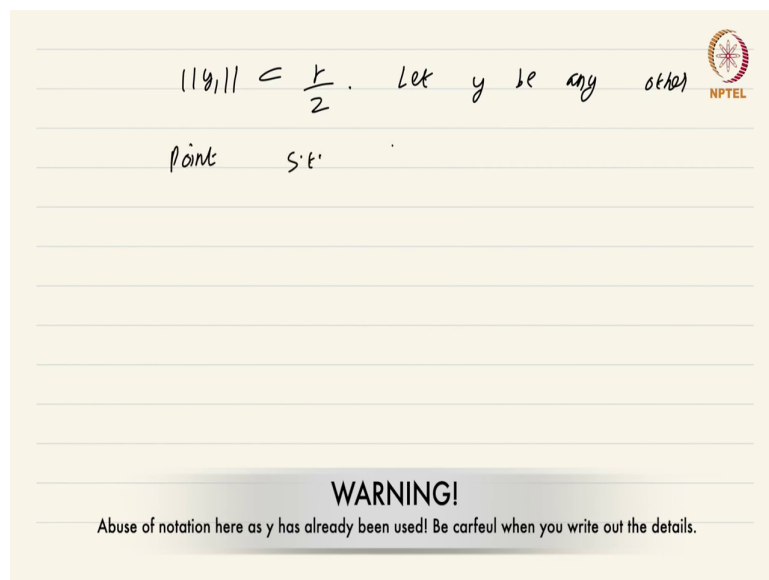 ||y₁|| < r/2 . Let y be any other
NPTEL
Point s.t.
WARNING!
Abuse of notation here as y has already been used! Be carfeul when you write out the details.